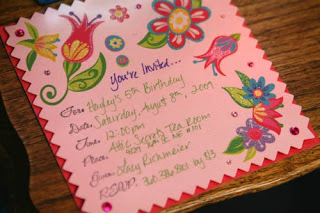 You're Invited...
For: Hayley's 5th Birthday
Date: Saturday, August 8th, 2009
Time: 12:00pm
Place: Attic Secrets Tea Room
Given: Lacy Richmeier
R.S.V.P.